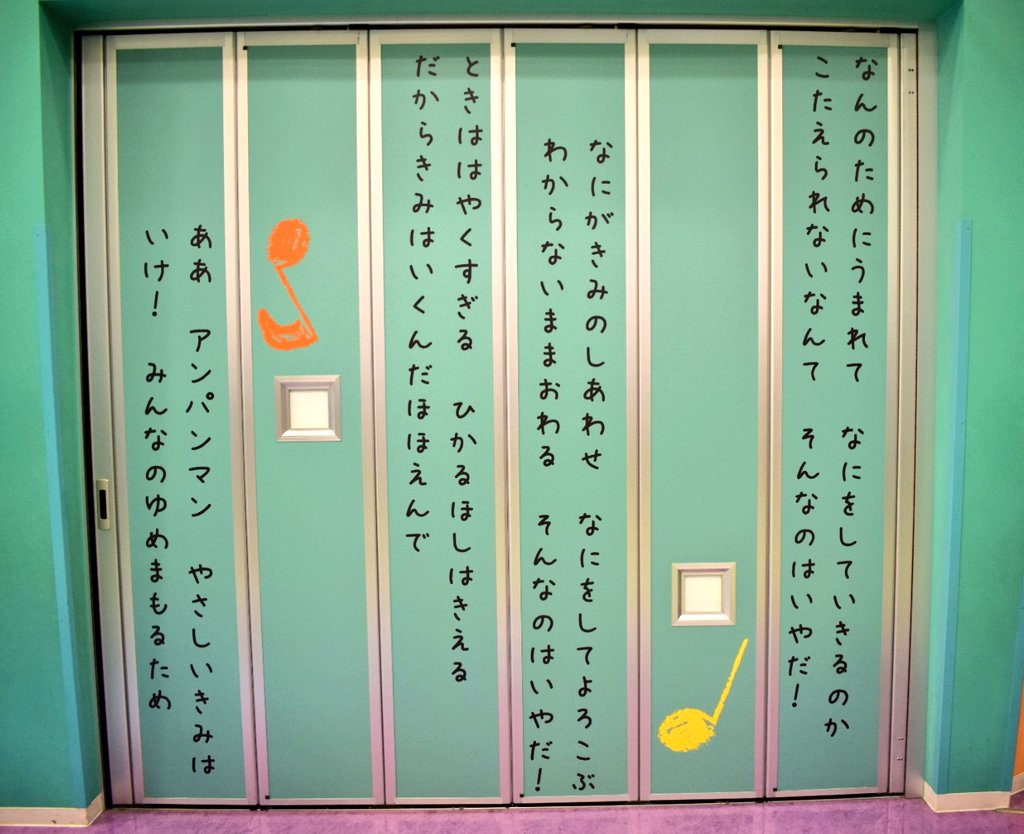 なんのためにうまれて　なにをしていきるのか
こたえられないなんて　そんなのはいやだ！
なにがきみのしあわせ　なにをしてよろこぶ
わからないままおわる　そんなのはいやだ！
ときははやくすぎる　ひかるほしはきえる
だからきみはいくんだほほえんで
ああ　アンパンマン　やさしいきみは
いけ！　みんなのゆめまもるため